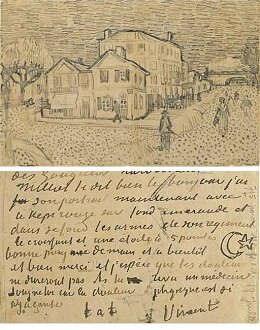 des
Milliet te dit bien le bonjour j'ai
fai son portrait maintenant avec
le kepi rouge sur fond emeraude et
dans ce fond les armes de son regiment
le croissant et une étoile à 5 pointes
bonne poignee de main et a bientot
et bien merci et j'espère que les douleurs
ne dureront pas As tu un medecin
Soigne toi car la douleur physique est si
agaçante
t. à t. Vincent